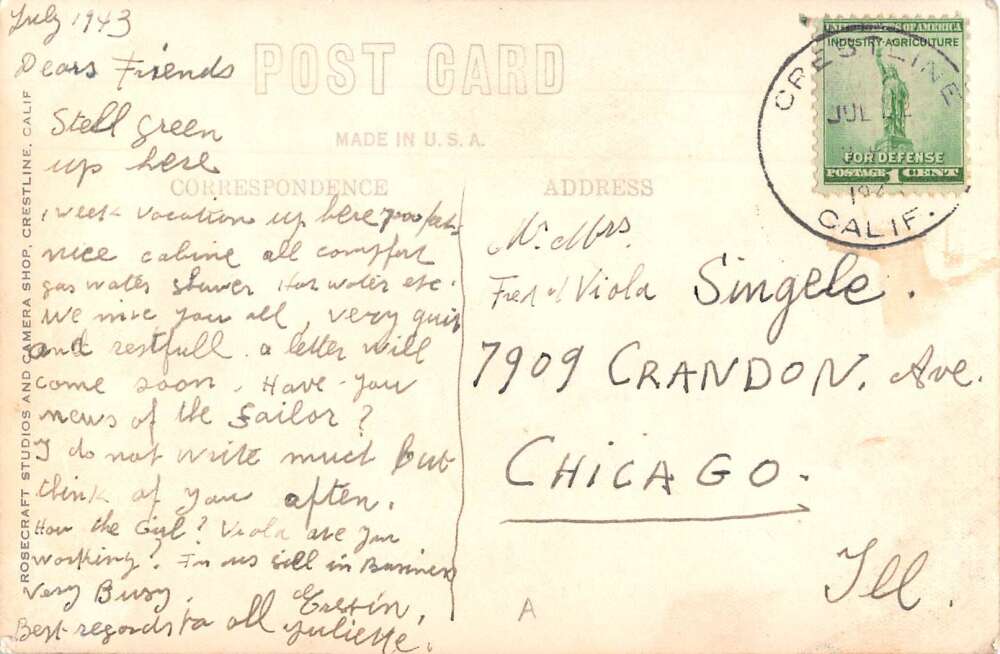 July 1943
Dears Friends
Stell green
up here
1 week vacation up here 7000
nice cabine all comffort
gas water shower Hot water etc.
We mise you all, very quit
and restfull. a letter will
come soon. Have you
news of the Sailor?
I do not write much but
think of you aften.
How the Girl? Viola are you
working? sill in Business
Very Busy.
Best regards to all
Juliette.
POST CARD
MADE IN U.S.A.
CORRESPONDENCE
ADDRESS
Mr. Mrs.
Fred et Viola Singele.
7909 CRANDON. Ave.
CHICAGO.
Ill.
A
ROSECRAFT STUDIOS AND CAMERA SHOP, CRESTLINE, CALIF
UNITED STATES OF AMERICA
INDUSTRY-AGRICULTURE
FOR DEFENSE
POSTAGE 1 CENT
CRESTLINE
JUL
CALIF.